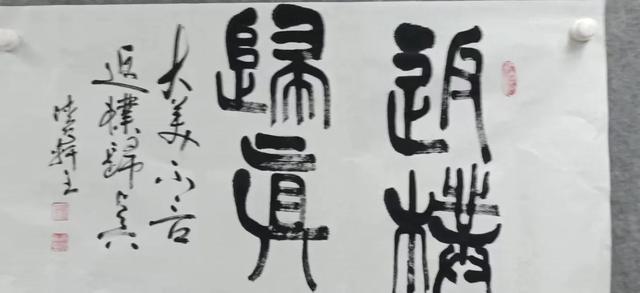 返樸
歸真
大美不言
返樸歸真
軒主